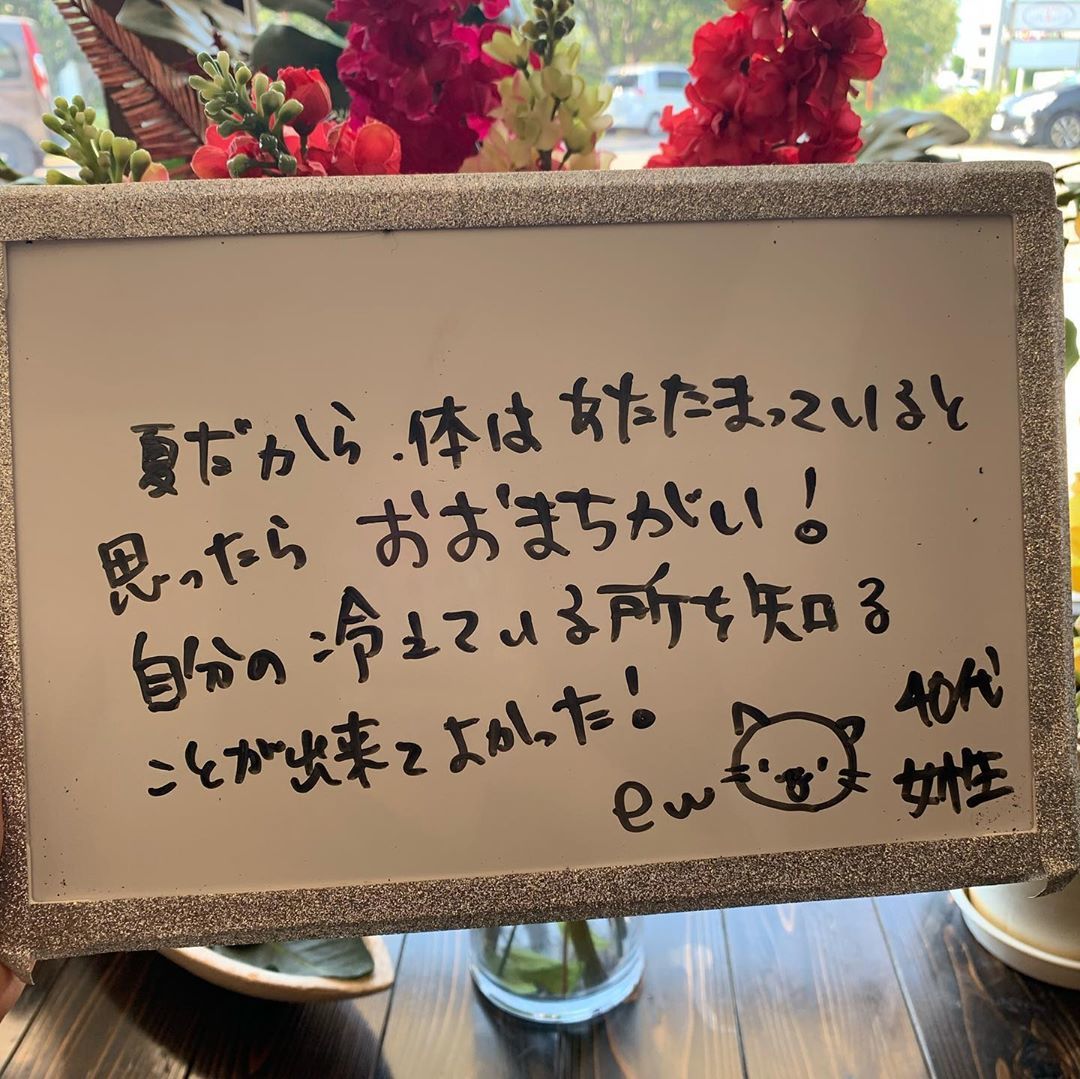 夏だから、体はあたたまっていると
思ったらおおまちがい！
自分の冷えている所を知る
ことが出来てよかった！
ew
40代
女性